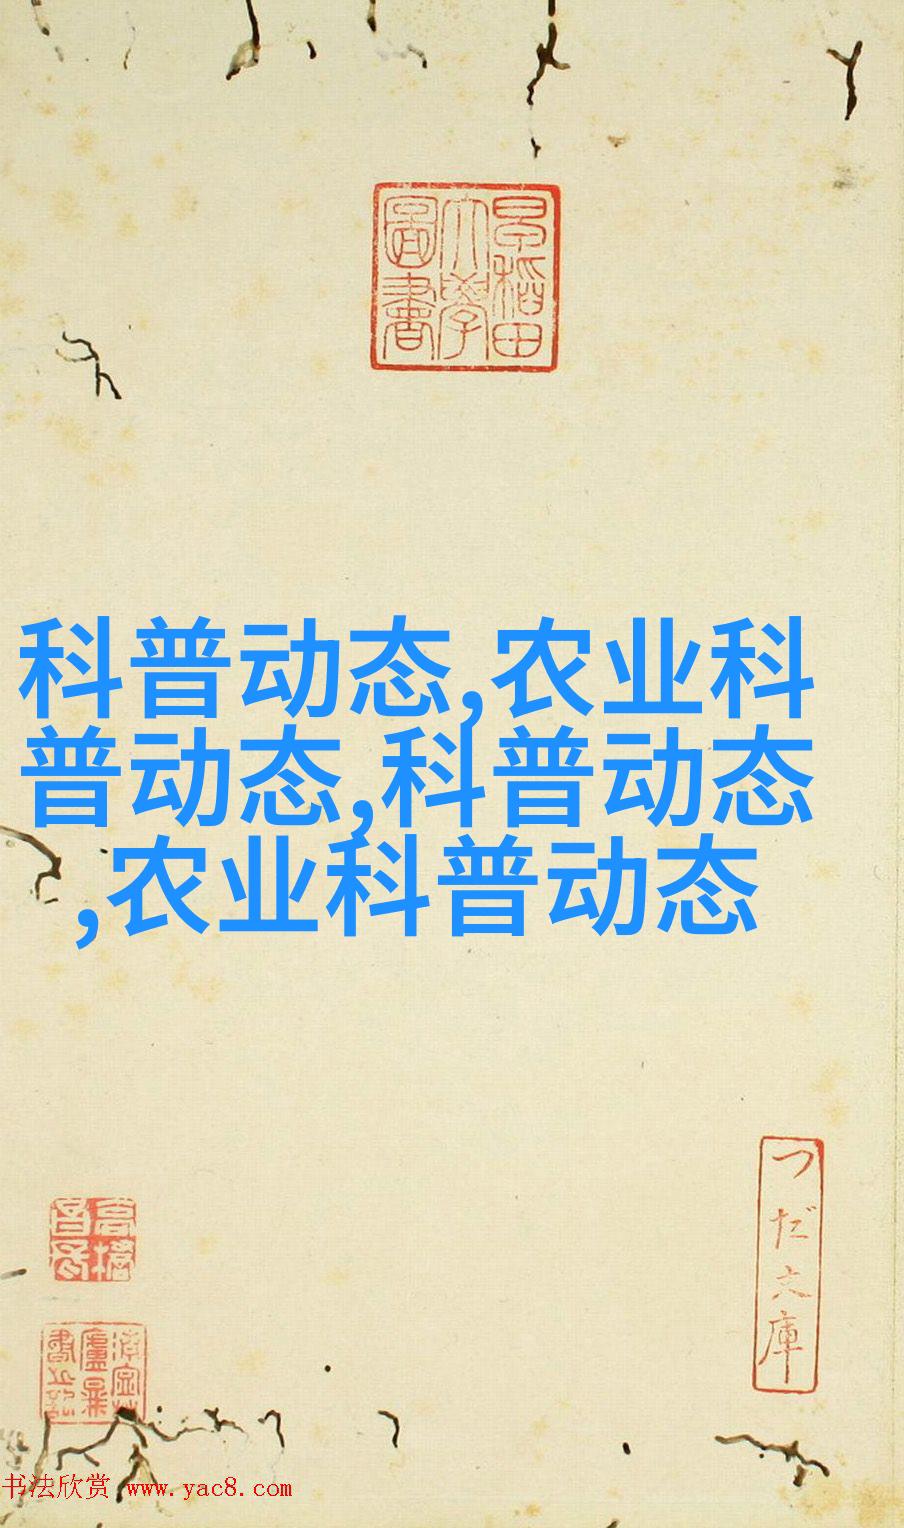 早稲田
大學
圖書
科普动态,农业科
普动态,科普动态
,农业科普动态
つだ文庫
书法欣赏 www.yac8.com